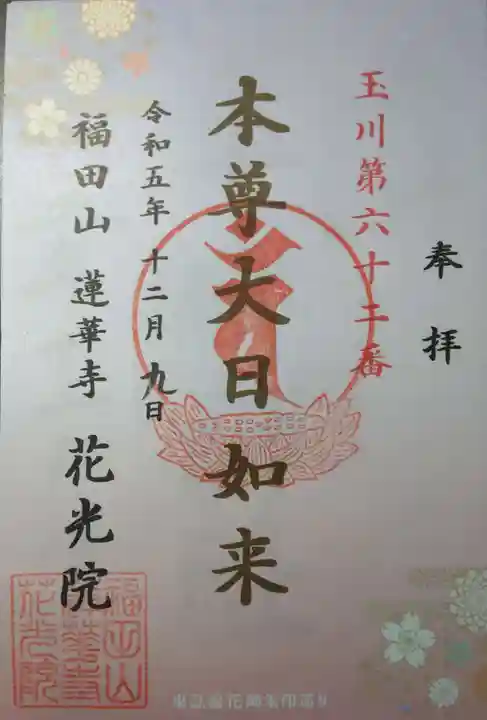 奉拝
玉川第六十二番
本尊大日如来
令和五年 十二月 九日
福田山 蓮華寺 花光院
福田山
蓮華寺
花光院